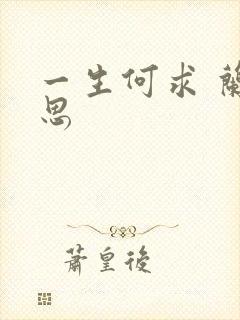 一生何求 蘭
思
蕭皇後